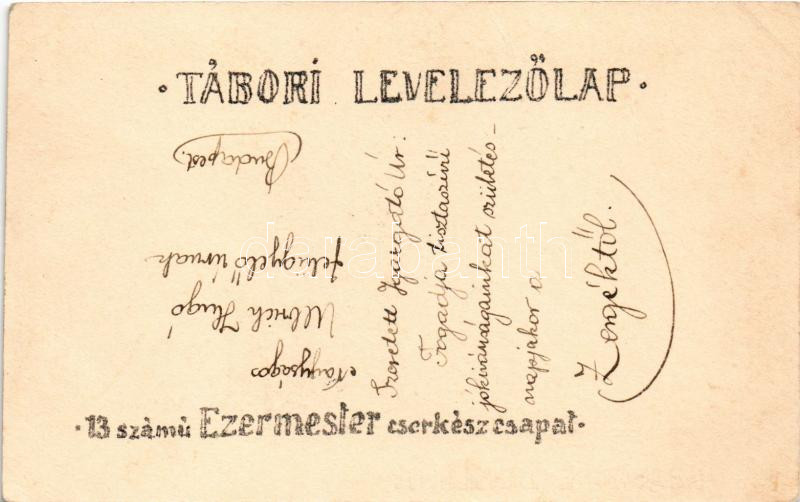 · TÁBORI LEVELEZŐLAP ·
Nagyságos
Ullrich Hugó
felügyelő úrnak
Budapest.
Szeretett Igazgató Úr:
Fogadja tisztaszívű
jókivánságainkat születés-
napjakor a
Zengéktől.
· 13 számú Ezermester cserkészcsapat ·
darabanth